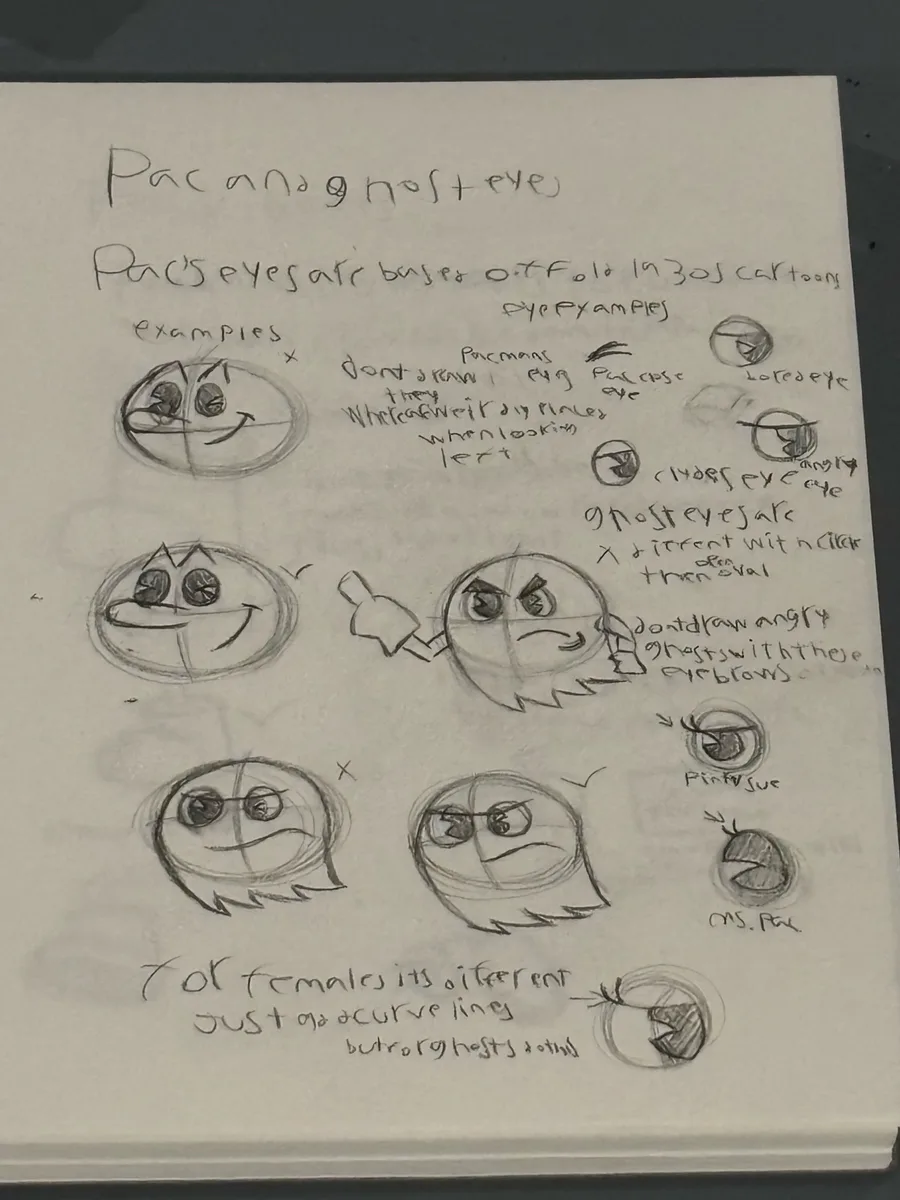 Pac and ghost eyes
Pac's eyes are based off old 1930s cartoons
examples
eye examples
dont draw Pacmans eye
they
Where at weird places
when looking
left
Pac pose
eye
bored eye
angry
eye
clydes eye
ghost eyes are
x different with circle
then oval
dont draw angry
ghosts with these
eyebrows
x
x
Pinky/Sue
ms. Pac
For females its different
Just add curve lines
but for ghosts do this